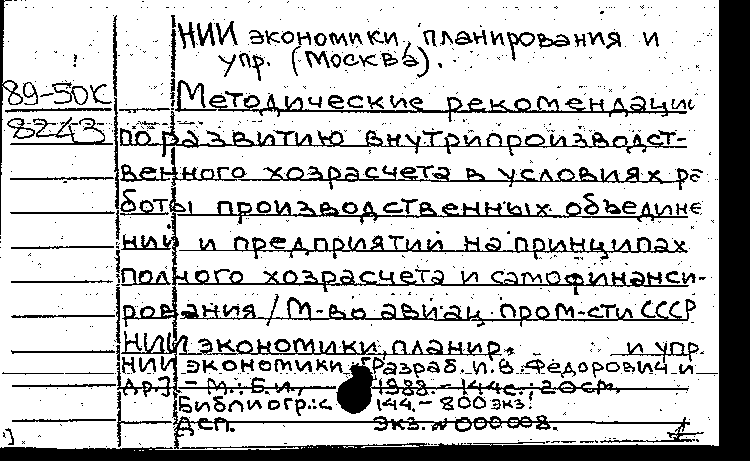 НИИ экономики, планирования и
упр. (Москва).
89-50К Методические рекомендации
8243 по развитию внутрипроизводст-
венного хозрасчета в условиях ра
боты производственных объедине
ний и предприятий на принципах
полного хозрасчета и самофинанси-
рования / М-во авиац. пром-сти СССР
НИИ экономики, планир. и упр.
НИИ экономики [Разраб. П.В. Федорович и
др.]. - М.: Б.и., 1988. - 144с.; 20см.
Библиогр.: с 144. - 800 экз.
ДСП. Экз. №000008.